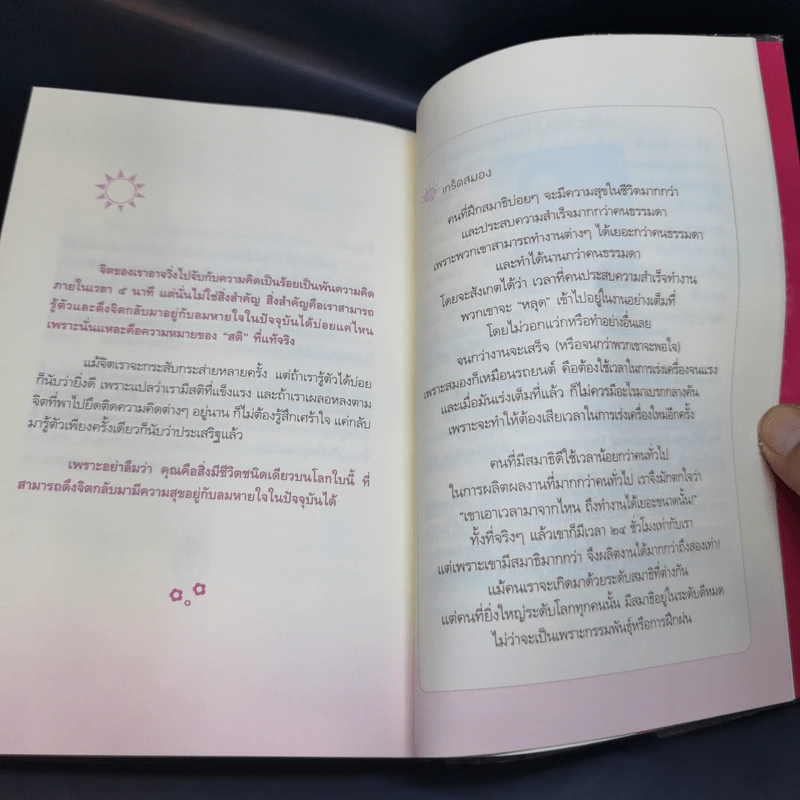 จิตของเราอาจวิ่งไปจับกับความคิดเป็นร้อยเป็นพันความคิด
ภายในเวลา ๕ นาที แต่นั่นไม่ใช่สิ่งสำคัญ สิ่งสำคัญคือเราสามารถ
รู้ตัวและดึงจิตกลับมาอยู่กับลมหายใจในปัจจุบันได้บ่อยแค่ไหน
เพราะนั่นแหละคือความหมายของ "สติ" ที่แท้จริง
แม้จิตเราจะกระสับกระส่ายหลายครั้ง แต่ถ้าเรารู้ตัวได้บ่อย
ก็นับว่ายิ่งดี เพราะแปลว่าเรามีสติที่แข็งแรง และถ้าเราเผลอหลงตาม
จิตที่พาไปยึดติดความคิดต่างๆ อยู่นาน ก็ไม่ต้องรู้สึกเศร้าใจ แค่กลับ
มารู้ตัวเพียงครั้งเดียวก็นับว่าประเสริฐแล้ว
เพราะอย่าลืมว่า คุณคือสิ่งมีชีวิตชนิดเดียวบนโลกใบนี้ ที่
สามารถดึงจิตกลับมามีความสุขอยู่กับลมหายใจในปัจจุบันได้
เกร็ดสมอง
คนที่ฝึกสมาธิบ่อยๆ จะมีความสุขในชีวิตมากกว่า
และประสบความสำเร็จมากกว่าคนธรรมดา
เพราะพวกเขาสามารถทำงานต่างๆ ได้เยอะกว่าคนธรรมดา
และทำได้นานกว่าคนธรรมดา
โดยจะสังเกตได้ว่า เวลาที่คนประสบความสำเร็จทำงาน
พวกเขาจะ "หลุด" เข้าไปอยู่ในงานอย่างเต็มที่
โดยไม่วอกแวกหรือทำอย่างอื่นเลย
จนกว่างานจะเสร็จ (หรือจนกว่าพวกเขาจะพอใจ)
เพราะสมองก็เหมือนรถยนต์ คือต้องใช้เวลาในการเร่งเครื่องจนแรง
และเมื่อมันเร่งเต็มที่แล้ว ก็ไม่ควรมีอะไรมาเบรกกลางคัน
เพราะจะทำให้ต้องเสียเวลาในการเร่งเครื่องใหม่อีกครั้ง
คนที่มีสมาธิดีใช้เวลาน้อยกว่าคนทั่วไป
ในการผลิตผลงานที่มากกว่าคนทั่วไป เราจึงมักตกใจว่า
"เขาเอาเวลามาจากไหน ถึงทำงานได้เยอะขนาดนั้น!"
ทั้งที่จริงๆ แล้วเขาก็มีเวลา ๒๔ ชั่วโมงเท่ากับเรา
แต่เพราะเขามีสมาธิมากกว่า จึงผลิตงานได้มากกว่าถึงสองเท่า!
แม้คนเราจะเกิดมาด้วยระดับสมาธิที่ต่างกัน
แต่คนที่ยิ่งใหญ่ระดับโลกทุกคนนั้น มีสมาธิอยู่ในระดับดีหมด
ไม่ว่าจะเป็นเพราะกรรมพันธุ์หรือการฝึกฝน